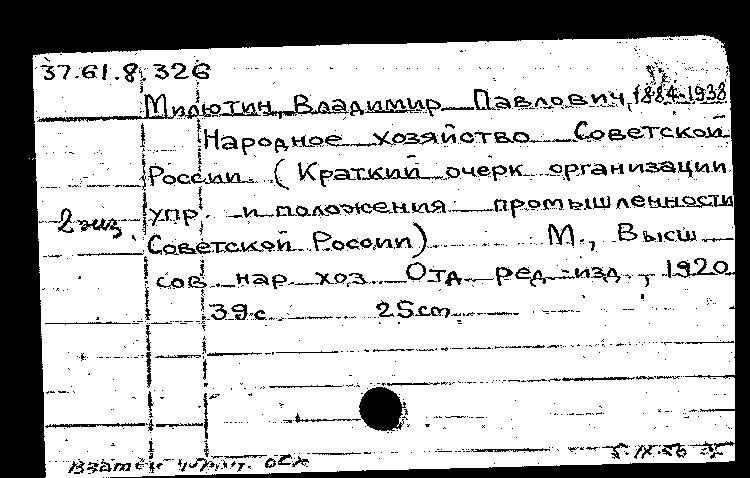 37.61.8.326
Милютин, Владимир Павлович, 1884-1938
Народное хозяйство Советской
России. (Краткий очерк организации
упр. и положения промышленности
2 экз. Советской России) М., Высш
сов. нар. хоз. Отд. ред.-изд., 1920
39с. 25cm
5.IX.56